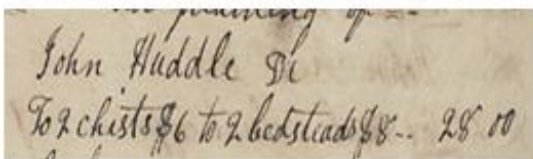 planing of
John Huddle Dr
To 2 chists $6 to 2 bedsteads $8-- 28 00